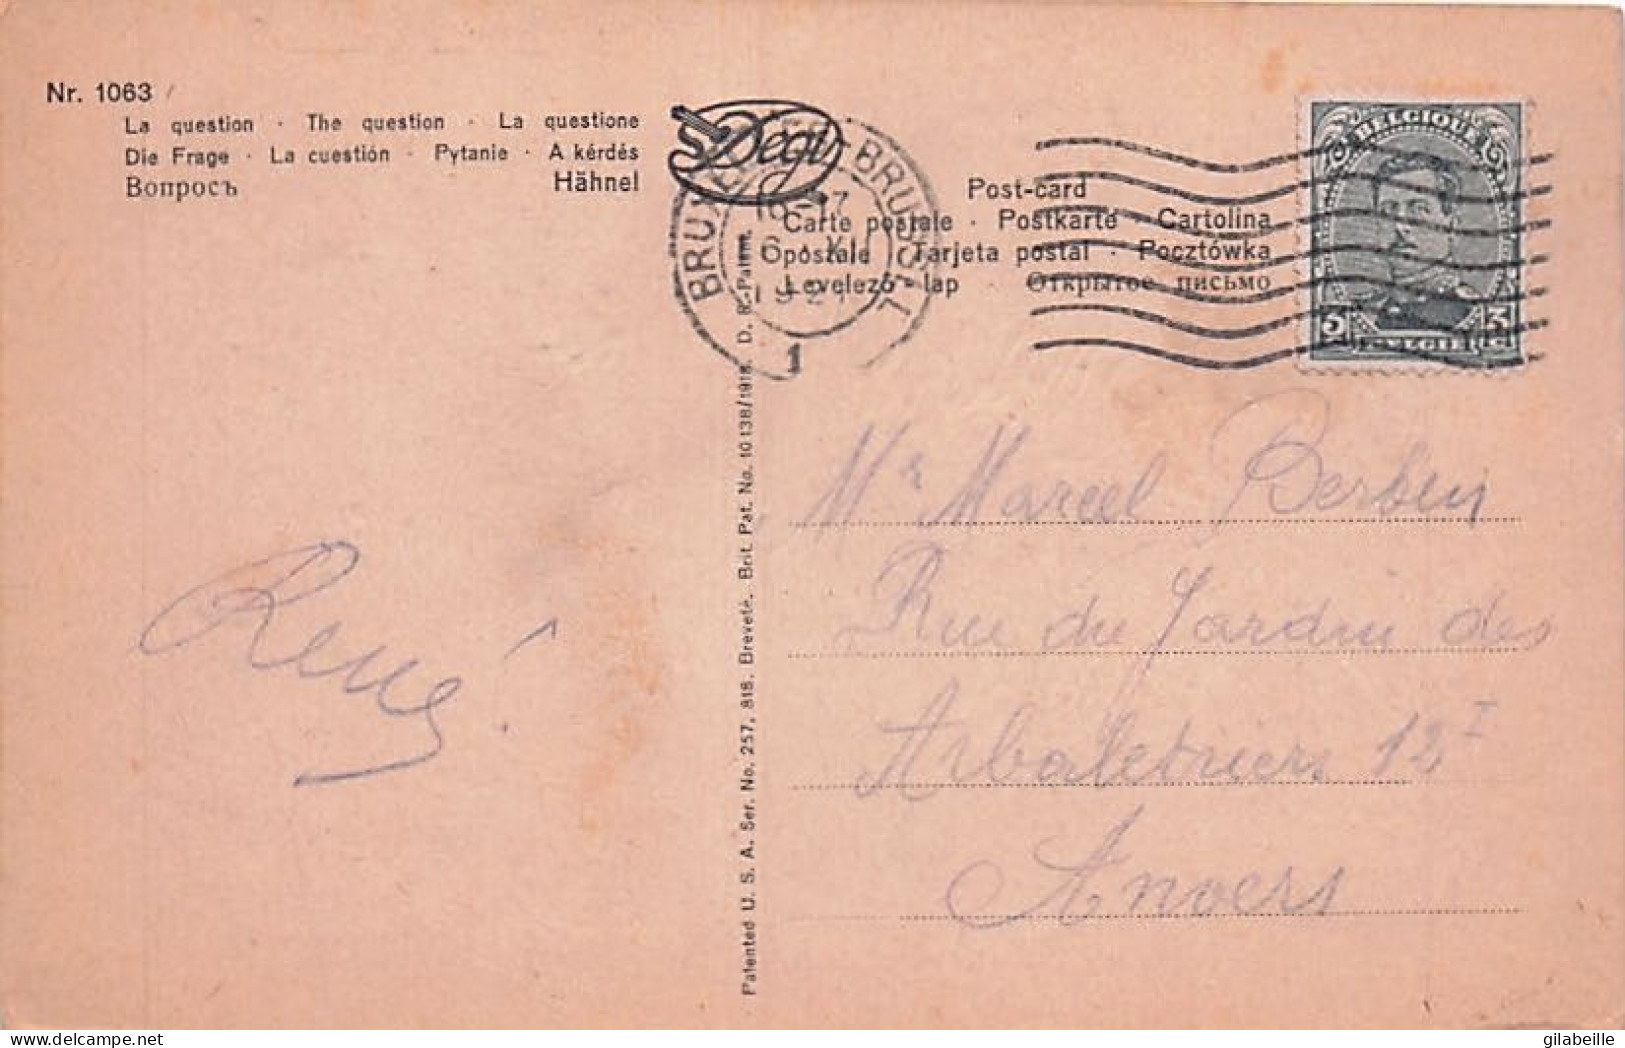 Nr. 1063
La question · The question · La questione
Die Frage · La cuestión · Pytanie · A kérdés
Вопросъ Hähnel
Degi
BRUXELLES BRUSSEL
16-17
6 X
1921
1
Post-card
Carte postale · Postkarte · Cartolina
postale · Tarjeta postal · Pocztówka
Levelező lap · Открытое письмо
BELGIQUE
5 BELGIË 5
C
Patented U. S. A. Ser. No. 257, 818. Breveté. Brit. Pat. No. 10138/1918. D. R. Patm.
René!
Mr Marcel Berben
Rue du Jardin des
Arbaletriers 12 I
Anvers
gilabeille